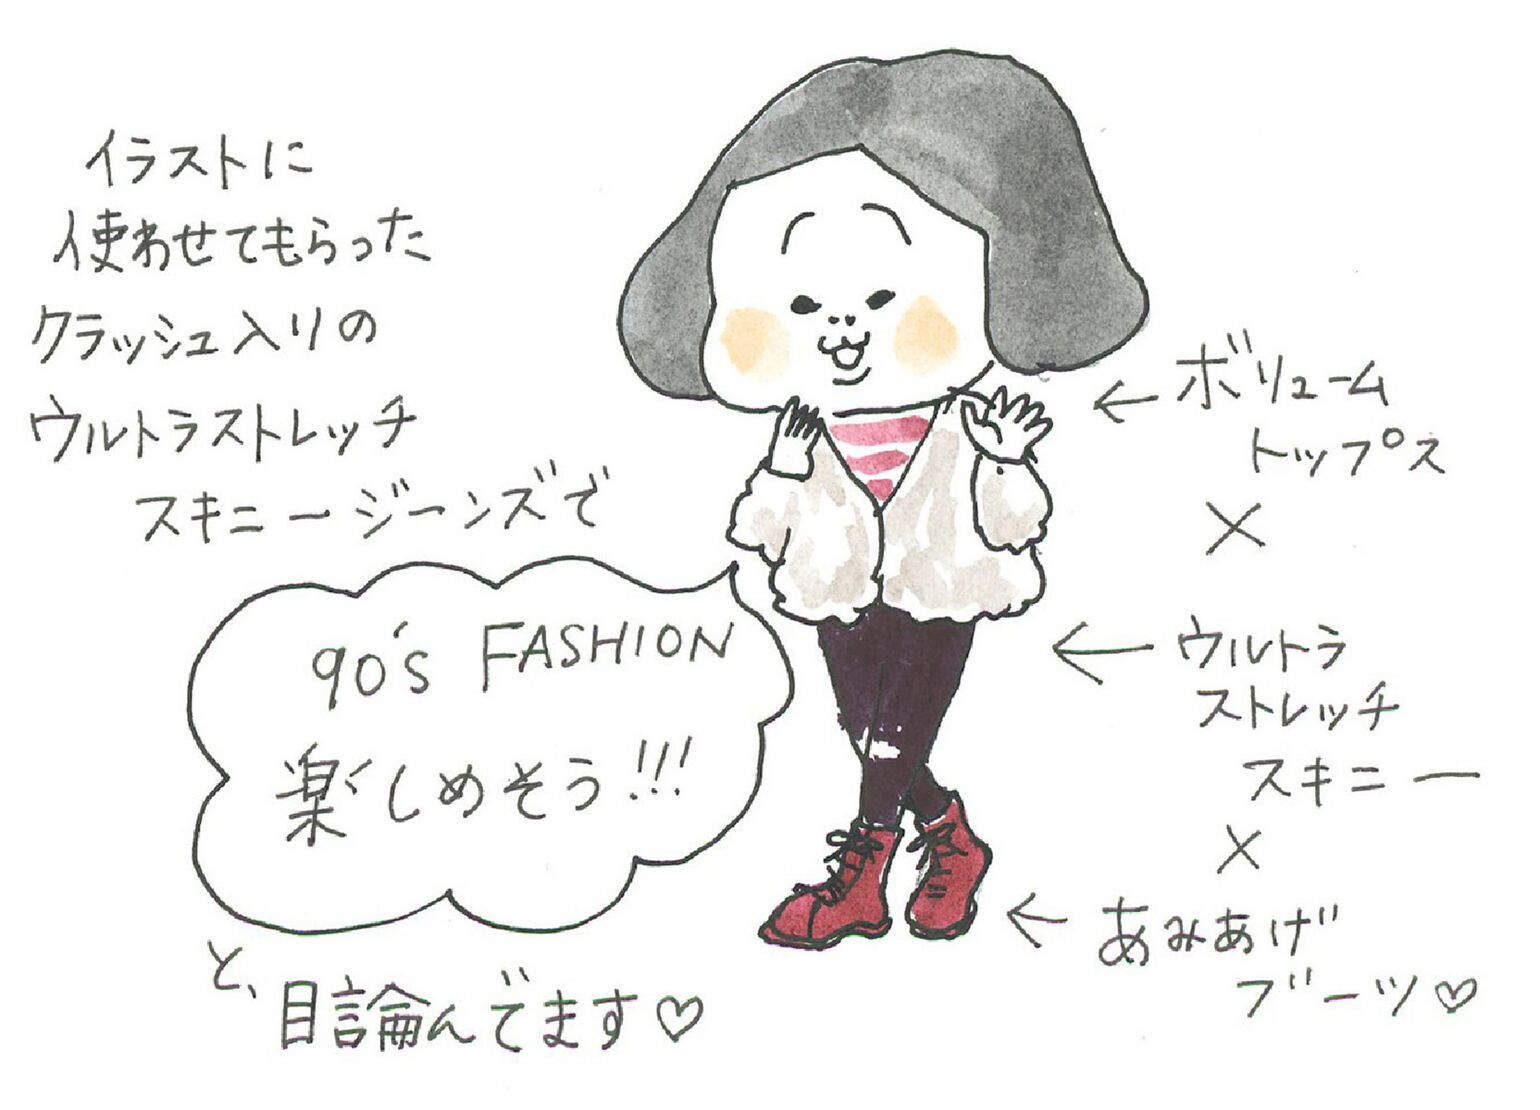 イラストに
使わせてもらった
クラッシュ入りの
ウルトラストレッチ
スキニージーンズで
90's FASHION
楽しめそう!!!
と、
目論んでます♡
←ボリューム
トップス
×
←ウルトラ
ストレッチ
スキニー
×
←あみあげ
ブーツ♡